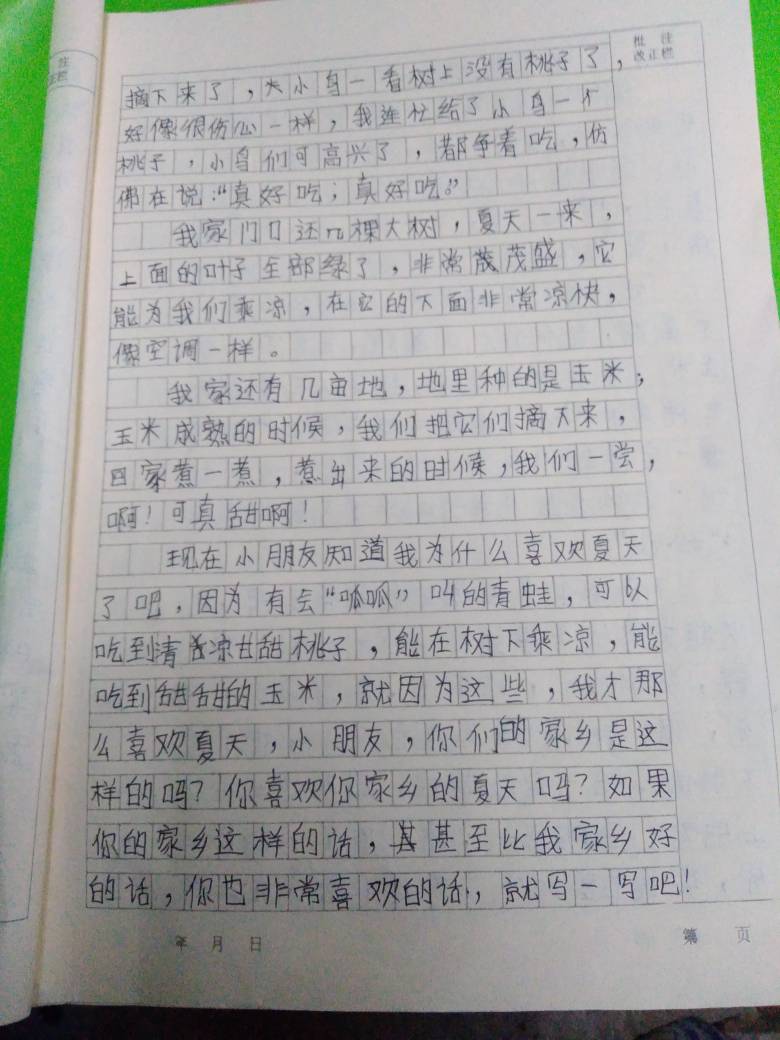 注
正栏
批 注
改正栏
摘下来了，大小鸟一看树上没有桃子了，
好像很伤心一样，我连忙给了小鸟一个
桃子，小鸟们可高兴了，都争着吃，仿
佛在说："真好吃；真好吃。"
我家门口还几棵大树，夏天一来，
上面的叶子全部绿了，非常茂茂盛，它
能为我们乘凉，在它的下面非常凉快，
像空调一样。
我家还有几亩地，地里种的是玉米；
玉米成熟的时候，我们把它们摘下来，
回家煮一煮，煮出来的时候，我们一尝，
啊！可真甜啊！
现在小朋友知道我为什么喜欢夏天
了吧，因为有会"呱呱"叫的青蛙，可以
吃到清凉甘甜桃子，能在树下乘凉，能
吃到甜甜的玉米，就因为这些，我才那
么喜欢夏天，小朋友，你们的家乡是这
样的吗？你喜欢你家乡的夏天吗？如果
你的家乡这样的话，甚至比我家乡好
的话，你也非常喜欢的话，就写一写吧！
年 月 日
第 页